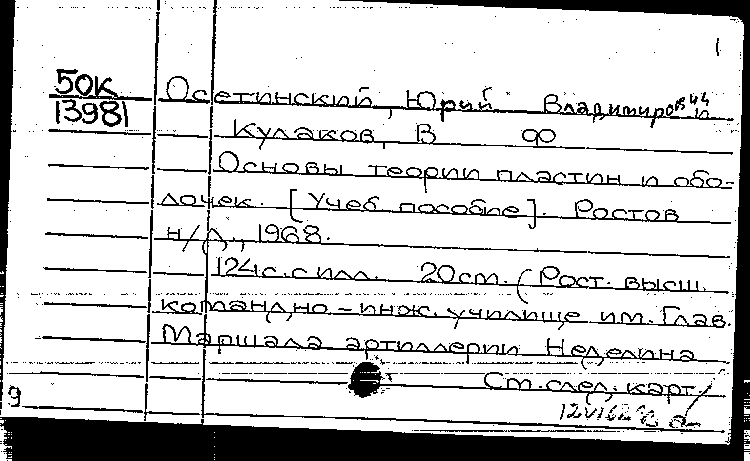 1
50К
13981
Осетинский, Юрий Владимирович и
Кулаков, В Ф
Основы теории пластин и обо-
лочек. [Учеб пособие]. Ростов
н/Д., 1968.
124 с. с илл. 20 см. (Рост. высш.
командно-инж. училище им. Глав.
Маршала артиллерии Неделина
См. след. карт
9